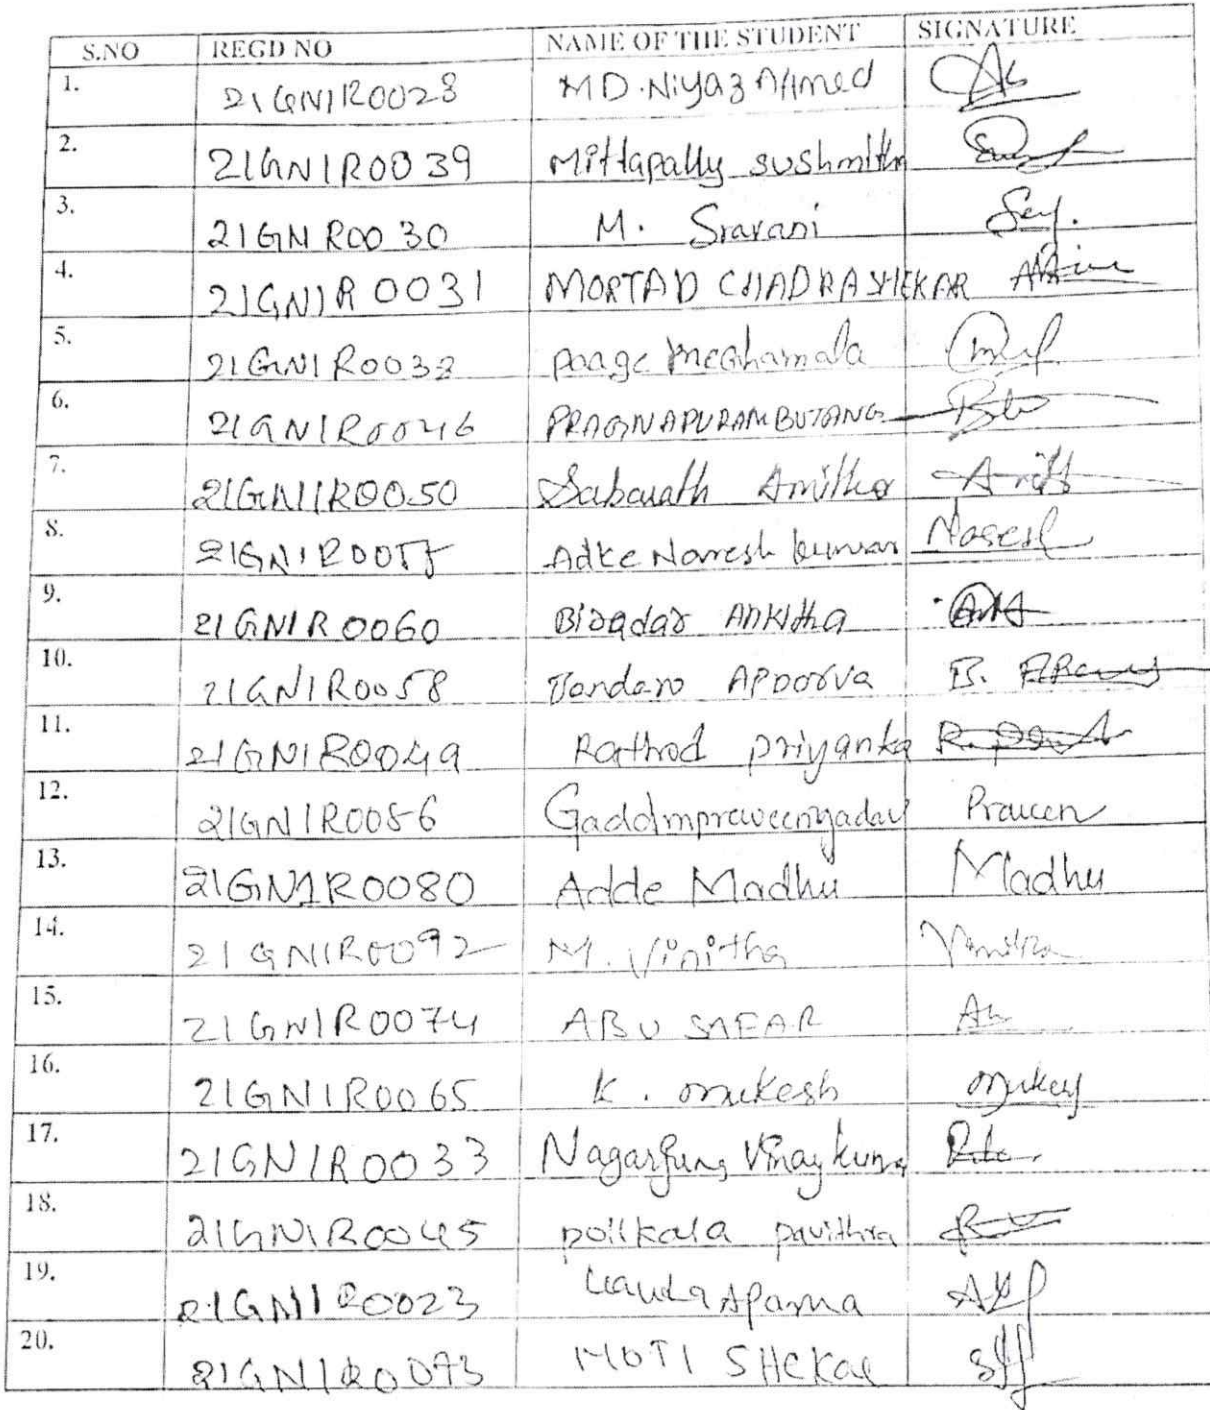 S.NO REGD NO NAME OF THE STUDENT SIGNATURE
1. 21GN1R0028 MD.Niyaz Ahmed
2. 21GN1R0039 Mittapally sushmitha
3. 21GN R00 30 M. Sravani
4. 21GN1R 0031 MORTAD CHADRASHEKAR
5. 21GN1R0038 paage meghamala
6. 21GN1R0046 PRAGNAPURAM BUTANG
7. 21GN1R0050 Sabavath Amitha
8. 21GN1R0057 Adke Narresh kumar
9. 21GN1R0060 Biradar ANKitha
10. 21GN1R0058 Apoorva B.
11. 21GN1R0049 Rathod priyanka
12. 21GN1R0056 Gaddmpraveenyadav Praveen
13. 21GN1R0080 Adde Madhu Madhu
14. 21GN1R0092 M. Vinitha Vinitha
15. 21GN1R0074 ABU
16. 21GN1R0065 K. mukesh mukesh
17. 21GN1R0033 Nagarjuna Vinay kuma
18. 21GN1R0045 polkala pavithra
19. 21GN1R0023 Aparna
20. 21GN1R0073 MOTI SHEKAR